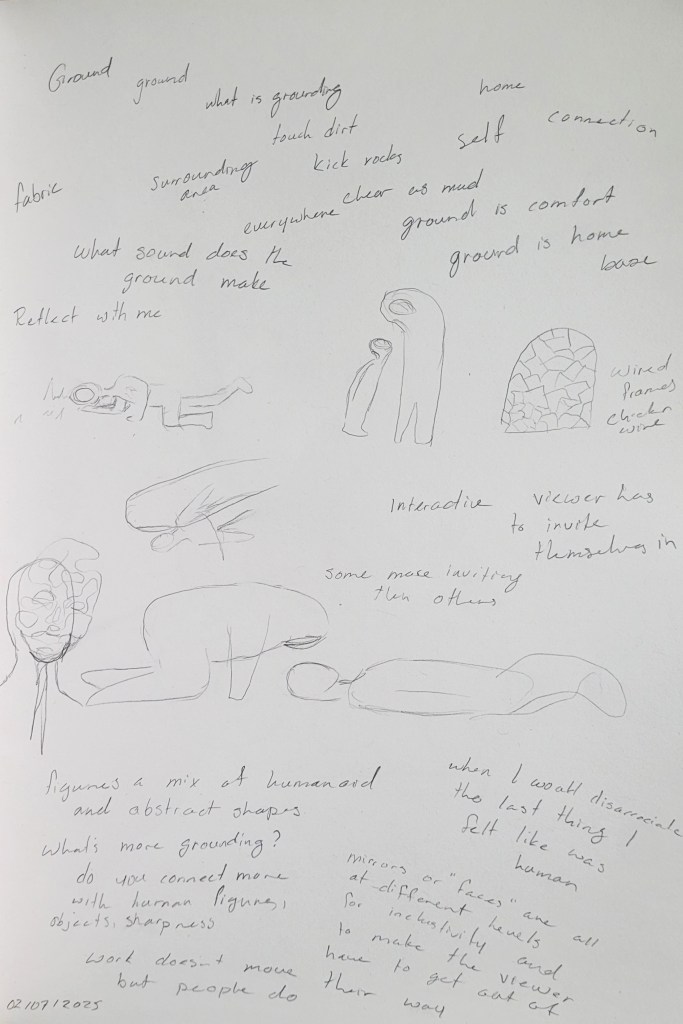 Ground
ground
what is grounding
home
touch dirt
self
connection
fabric
surrounding
area
kick rocks
clear as mud
everywhere
ground is comfort
what sound does the
ground make
ground is home
base
Reflect with me
wired
frames
chicken
wire
Interactive viewer has
to invite
themselves in
some more inviting
then others
figures a mix of humanoid
and abstract shapes
when I would
the last thing I
felt like was
human
what's more grounding?
do you connect more
with human figures,
objects, sharpness
mirrors or "faces" are all
at different levels
for and
to make the viewer
have to get out of
their way
work doesn't move
but people do
02/07/2025